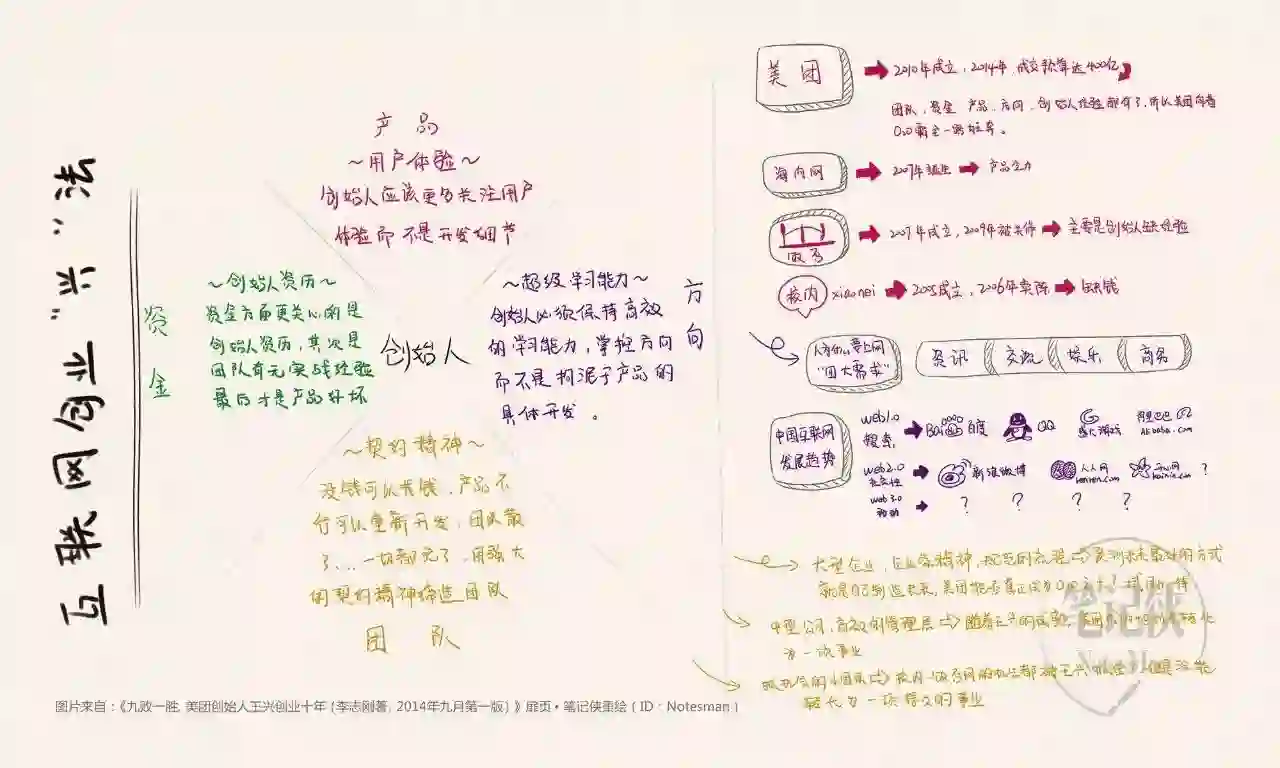 互联网创业"兴"法
产品
～用户体验～
创始人应该更多关注用户
体验而不是开发细节
资金
～创始人资历～
资金方面更关心的是
创始人资历，其次是
团队有无实战经验
最后才是产品好坏
创始人
～超级学习能力～
创始人必须保持高效
的学习能力，掌控方向
而不是拘泥于产品的
具体开发。
方向
～契约精神～
没钱可以找钱，产品不
行可以重新开发，团队散
了...一切都完了，用强大
的契约精神缔造团队
团队
美团
2010年成立，2014年，成交预算达400亿
团队，资金 产品，方向，创始人经验都有了，所以美团向着
O2O霸主一路狂奔。
海内网
2007年诞生 产品乏力
饭否
2007年成立，2009年被关停 主要是创始人缺经验
校内 xiaonei
2005成立，2006年卖除 缺钱
人为什么要上网
"四大需求"
资讯 交流 娱乐 商务
中国互联网
发展趋势
web1.0
搜索
Bai 百度
QQ
盛大游戏
阿里巴巴
Alibaba.com
web2.0
社交性
新浪微博
人人网
renren.com
开心网
kaixin.com
?
web3.0
移动
? ? ? ?
大型企业，企业家精神，规范的流程
就是自己制造未来，美团能否真正成为O2O
中型公司，高效的管理层 随着王兴的成熟，美团
为一项事业
成长为一项伟大的事业
笔记侠
图片来自：《九败一胜 美团创始人王兴创业十年（李志刚著，2014年九月第一版）》扉页•笔记侠重绘（ID：Notesman）